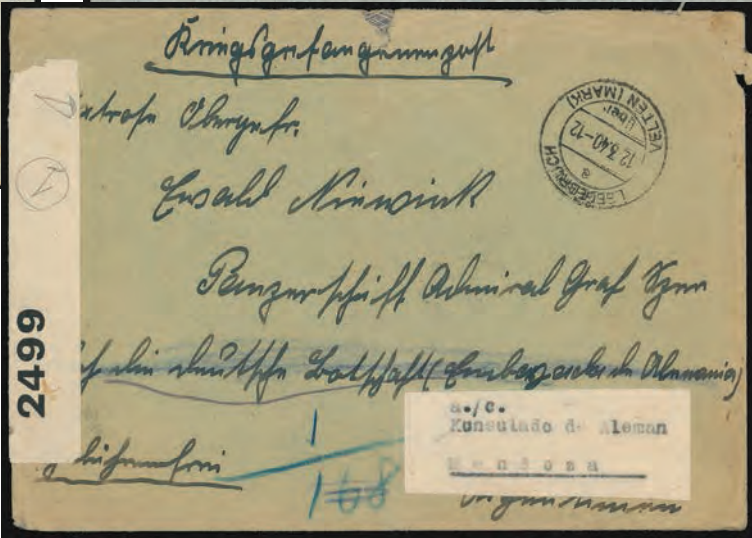 Kriegsgefangenenpost
LEEGEBRUCH
über
VELTEN (MARK)
12.3.40-12
a
Obergefr.
Ewald Niewind
Panzerschiff Admiral Graf Spee
die deutsche Botschaft (Embajada de Alemania)
2499
1
a./c.
Konsulado de Aleman
Mendoza
1
168
Argentinien